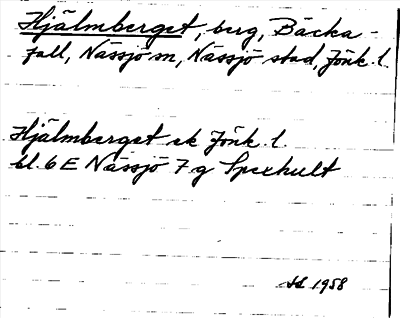 Hjälmberget, berg, Bäcka-
fall, Nässjö sn, Nässjö stad, Jönk. l.
Hjälmberget ek Jönk. l.
bl. 6E Nässjö 7 g Spexhult
1958